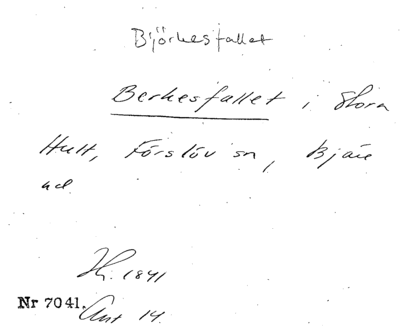 Björkesfallet
Berkesfallet i Stora
Hult, Förslöv sn, Bjäre
hd
H. 1841
Nr 7041. Ant 14.